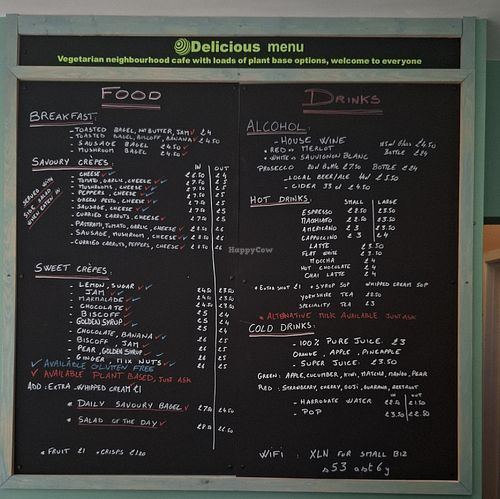 Delicious menu
Vegetarian neighbourhood cafe with loads of plant base options, welcome to everyone
FOOD
BREAKFAST:
- TOASTED BAGEL, NUTBUTTER, JAM £4
- TOASTED BAGEL, BISCOFF, BANANA £4.50
- SAUSAGE BAGEL £4.50
- MUSHROOM BAGEL £4.50
SAVOURY CRÊPES: IN OUT
SERVED WITH SIDE SALAD WHEN EATEN IN
- CHEESE
- TOMATO, GARLIC, CHEESE
- MUSHROOMS, CHEESE
- PEPPERS, CHEESE
- GREEN PESTO, CHEESE
- SAUSAGE, CHEESE
- CURRIED CARROTS, CHEESE
- PASTRAMI, TOMATO, GARLIC, CHEESE
- SAUSAGE, MUSHROOM, CHEESE
- CURRIED CARROTS, PEPPERS, CHEESE
SWEET CRÊPES:
- LEMON, SUGAR
- JAM
- MARMALADE
- CHOCOLATE
- BISCOFF £5 £4
- GOLDEN SYRUP £5 £4
- CHOCOLATE, BANANA £6 £5
- BISCOFF, JAM £6 £5
- PEAR, GOLDEN SYRUP £6 £5
- GINGER, MIX NUTS £6 £5
AVAILABLE GLUTEN FREE
AVAILABLE PLANT BASED, JUST ASK
ADD: EXTRA WHIPPED CREAM £1
* DAILY SAVOURY BAGEL
* SALAD OF THE DAY
* FRUIT £1 * CRISPS £1.20
DRINKS
ALCOHOL:
- HOUSE WINE
* RED MERLOT
* WHITE SAUVIGNON BLANC
BOTTLE £24
PROSECCO 20cl BOTTLE £7.50 BOTTLE £24
- LOCAL BEER/ALE
- CIDER 33 cl £4.50
HOT DRINKS: SMALL LARGE
ESPRESSO £2.50 £3.50
MACCHIATO £2.50 £3.50
AMERICANO £3 £3.50
CAPPUCCINO £3 £4
LATTE £3.50
FLAT WHITE £3.50
MOCCHA £4
HOT CHOCOLATE £4
CHAI LATTE £4
* EXTRA SHOT £1 * SYRUP 50P WHIPPED CREAM 50P
YORKSHIRE TEA £2.50
SPECIALITY TEA £3
* ALTERNATIVE MILK AVAILABLE JUST ASK
COLD DRINKS:
- 100% PURE JUICE: £3
ORANGE, APPLE, PINEAPPLE
- SUPER JUICE: £3.50
GREEN: APPLE, CUCUMBER, KIWI, MATCHA, MANGO, PEAR
RED: STRAWBERRY, CHERRY, GOJI, GUARANA, BEETROOT
IN OUT
- HARROGATE WATER £2.50 £1.50
- POP £3.50 £2.50
WIFI: XLN FOR SMALL BIZ
s53apt6y
HappyCow